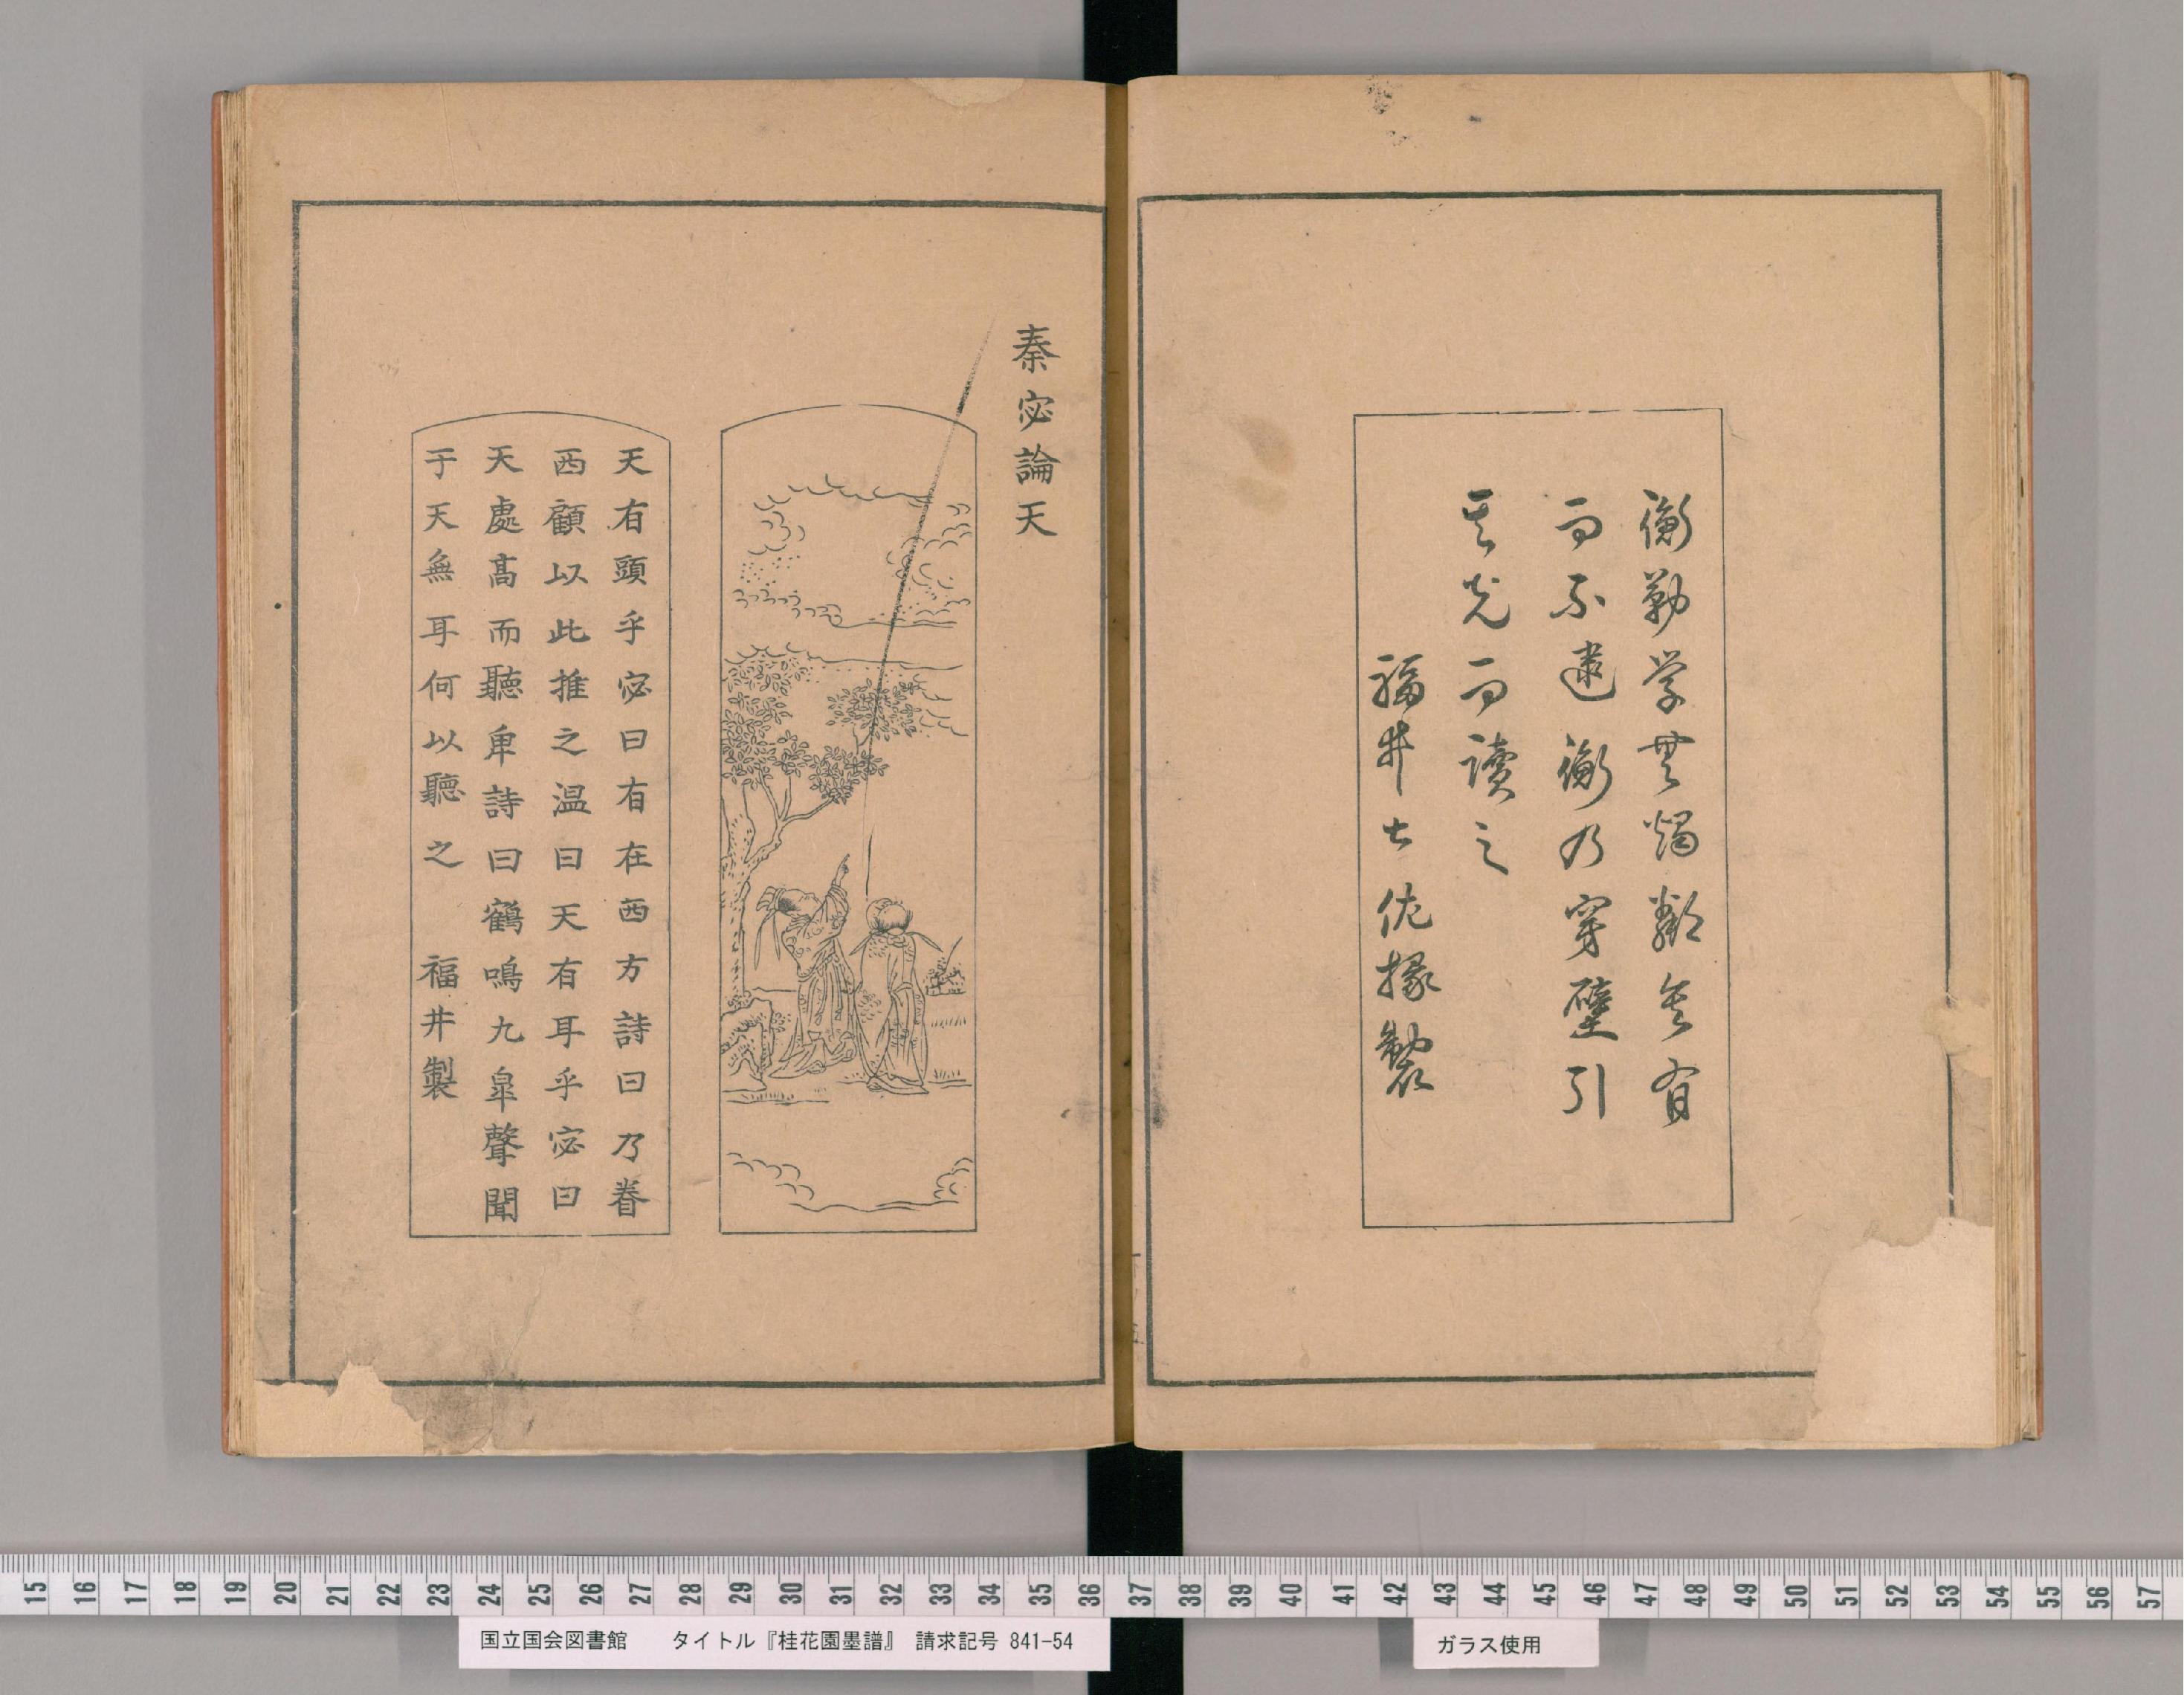 衡勤学無燭鄰舍有
而不逮衡乃穿壁引
其光而讀之
福井土佐掾製
秦宓論天
天有頭乎宓曰有在西方詩曰乃眷
西顧以此推之温曰天有耳乎宓曰
天處髙而聽卑詩曰鶴鳴九皐聲聞
于天無耳何以聽之　福井製
15 16 17 18 19 20 21 22 23 24 25 26 27 28 29 30 31 32 33 34 35 36 37 38 39 40 41 42 43 44 45 46 47 48 49 50 51 52 53 54 55 56 57
国立国会図書館　タイトル『桂花園墨譜』　請求記号 841-54
ガラス使用